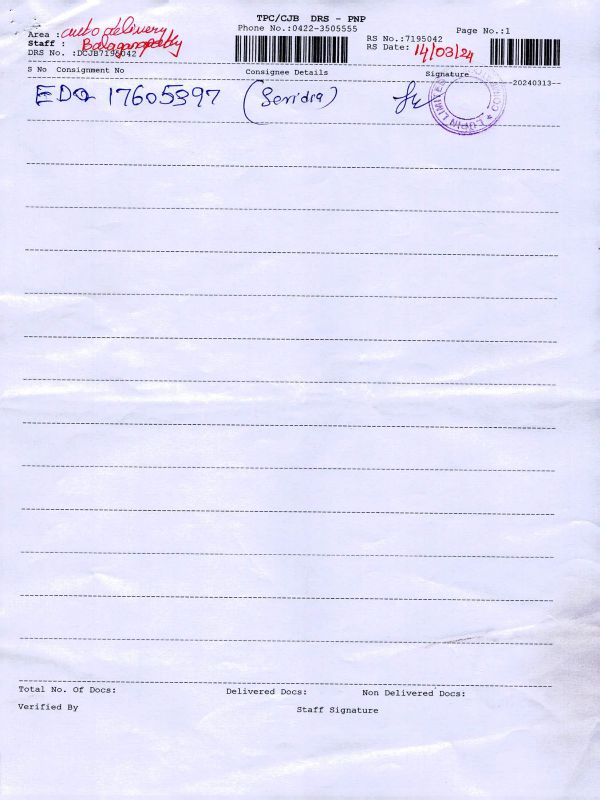 TPC/CJB DRS - PNP
Phone No.:0422-3505555
Page No.:1
Area : auto delivery
Staff : Balaganapathy
DRS No. :DCJB7195042
RS No.:7195042
RS Date: 14/03/24
S No Consignment No Consignee Details Signature
--20240313--
EDQ 17605397
LUPIN LIMITED
Total No. Of Docs: Delivered Docs: Non Delivered Docs:
Verified By Staff Signature